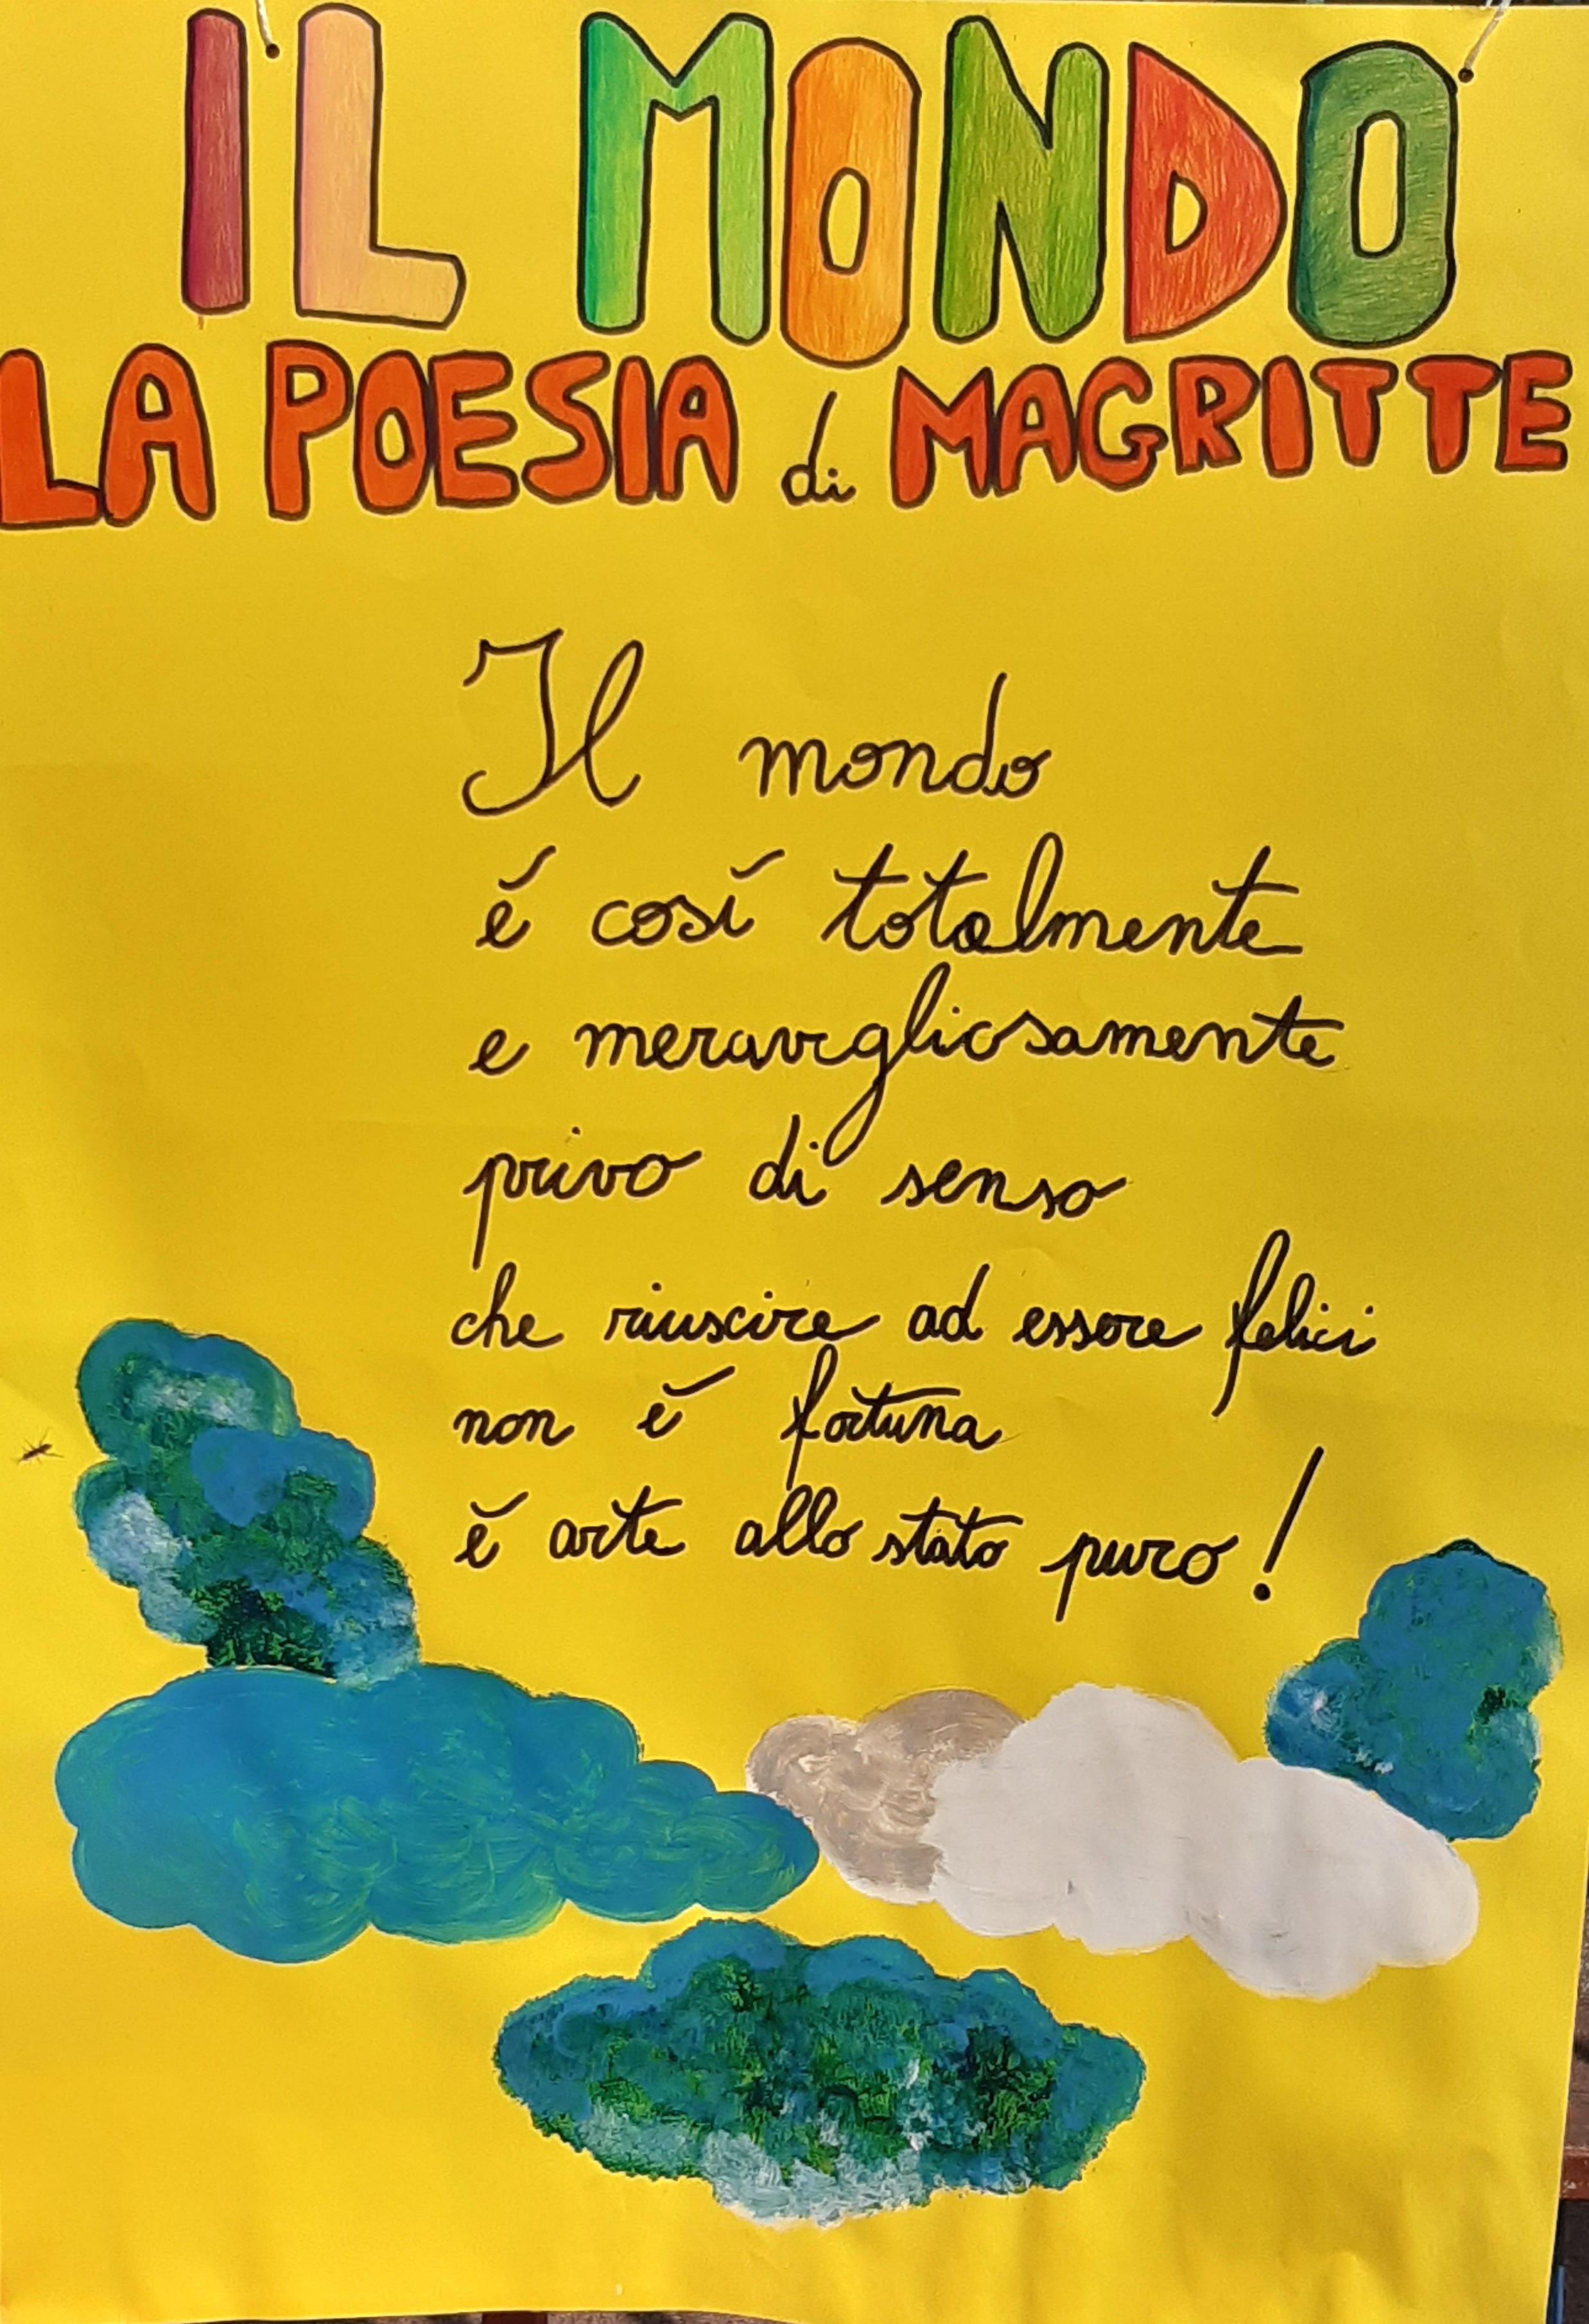 IL MONDO
LA POESIA di MAGRITTE
Il mondo
é cosí totalmente
e meravigliosamente
privo di senso
che riuscire ad essere felici
non é fortuna
é arte allo stato puro!